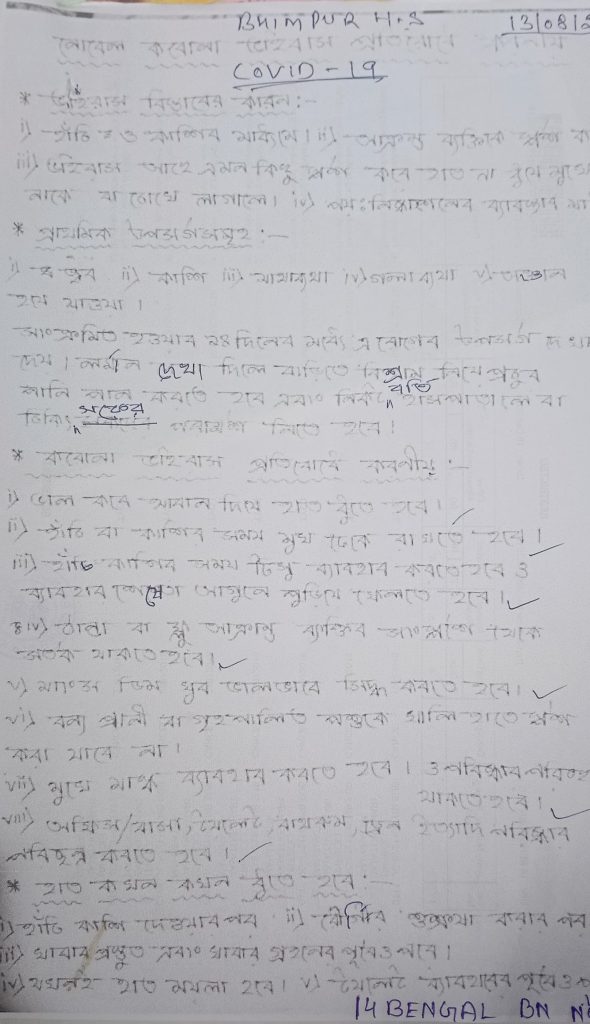 BHIMPUR H.S 13/08/2
নোবেল করোনা ভাইরাস প্রতিরোধে করনীয়
COVID-19
* ভাইরাস বিস্তারের কারন:-
i) হাঁচি ও কাশির মাধ্যমে। ii) আক্রান্ত ব্যক্তিকে স্পর্শ
iii) ভাইরাস আছে এমন কিছু স্পর্শ করে হাত না ধুয়ে মুখে
নাকে বা চোখে লাগালে। iv) পয়ঃনিষ্কাশনের ব্যাবস্থার মা
* প্রাথমিক উপসর্গসমূহ:-
i) জ্বর ii) কাশি iii) মাথাব্যথা iv) গলাব্যথা v)
হয়ে যাওয়া।
সংক্রমিত হওয়ার ১৪ দিনের মধ্যে এ রোগের উপসর্গ দেখা
দেয়। দেখা দিলে বাড়িতে বিশ্রাম নিয়ে প্রচুর
পানি পান করতে হবে এবং নিকটবর্তি হাসপাতালে বা
পরামর্শ নিতে হবে।
* করোনা ভাইরাস প্রতিরোধে করণীয়:-
i) ভাল করে সাবান দিয়ে হাত ধুতে হবে।
ii) হাঁচি বা কাশির সময় মুখ ঢেকে রাখতে হবে।
iii) হাঁচি কাশির সময় টিস্যু ব্যাবহার করতে হবে ও
ব্যাবহার শেষে আগুনে পুড়িয়ে ফেলতে হবে।
iv) ঠান্ডা বা ফ্লু আক্রান্ত ব্যক্তির সংস্পর্শ থেকে
সতর্ক থাকতে হবে।
v) মাংস ডিম খুব ভালভাবে সিদ্ধ করতে হবে।
vi) বন্য প্রানী বা গৃহপালিত পশুকে খালি হাতে স্পর্শ
করা যাবে না।
vii) মুখে মাস্ক ব্যাবহার করতে হবে। ও পরিষ্কার পরিচ্ছ
থাকতে হবে।
viii) অফিস/বাসা, টয়লেট, বাথরুম, ড্রেন ইত্যাদি পরিষ্কার
পরিছন্ন করতে হবে।
* হাত কখন কখন ধুতে হবে:-
i) হাঁচি কাশি দেওয়ার পর ii) রোগীর শুশ্রুষা করার পর
iii) খাবার প্রস্তুত এবং খাবার গ্রহনের পূর্বে ও পরে।
iv) যখনই হাত ময়লা হবে। v) টয়লেট ব্যাবহারের পূর্বে ও
14 BENGAL BN N